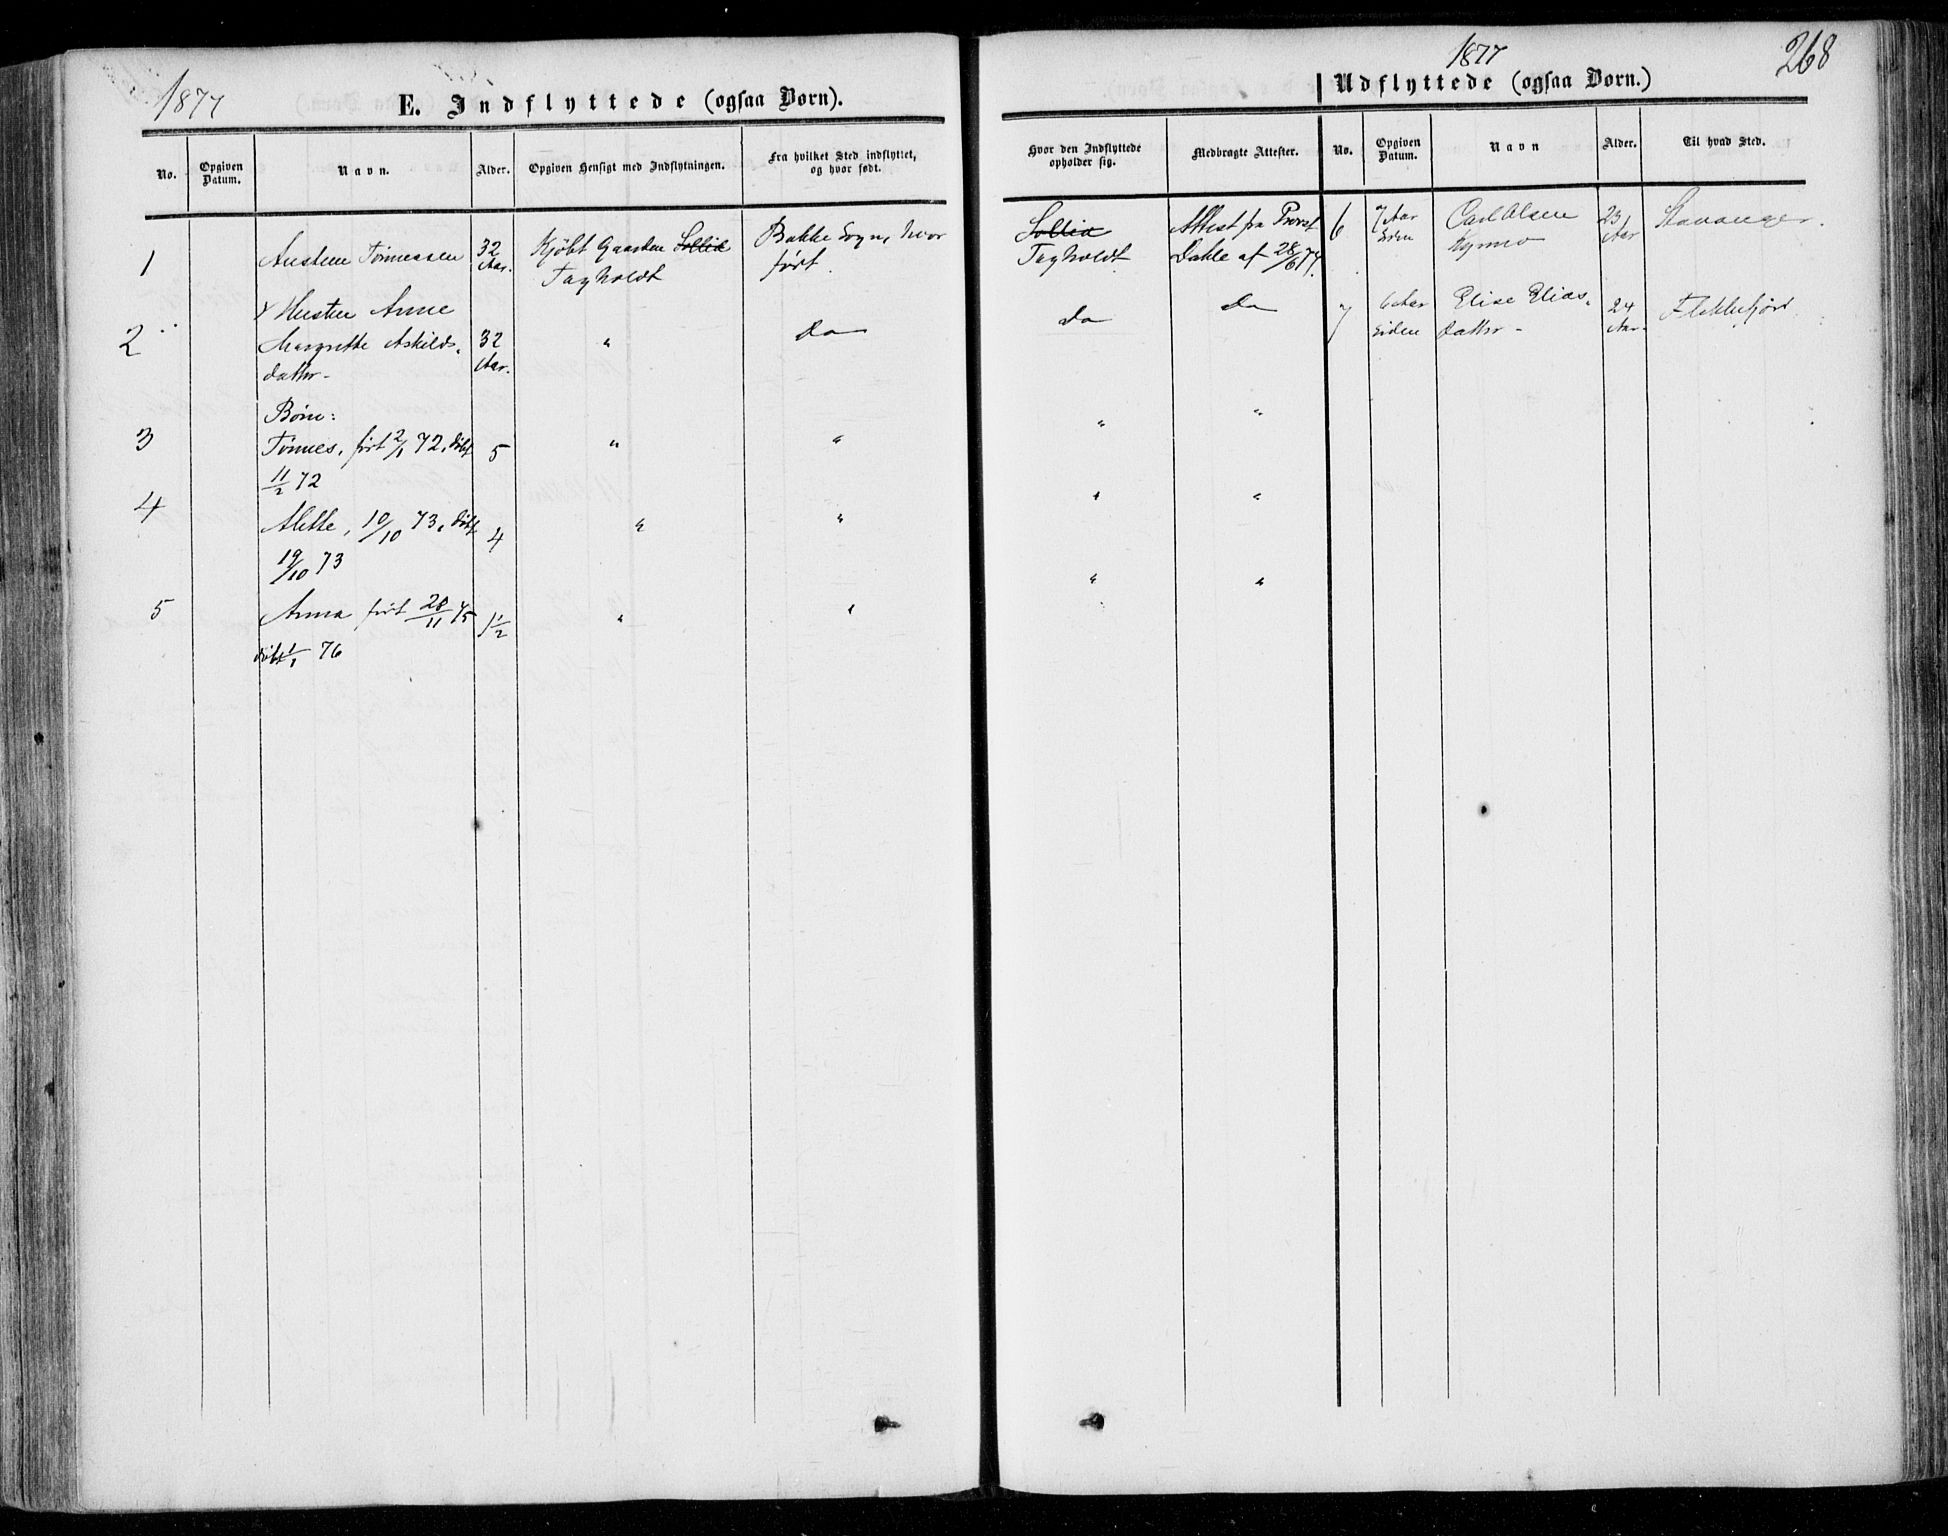 1877
E. Indflyttede (ogsaa Børn).
No.
Opgiven Datum.
Navn.
Alder.
Opgiven Hensigt med Indflytningen.
Fra hvilket Sted indflyttet, og hvor født.
1
Tønnessen
32 Aar.
Kjøbt Gaarden Sollid
Tagholdt
Bakke Sogn, hvor
født.
2
Hustru Anne
Margrethe Askilds-
datter
32 Aar.
"
Do
Børn:
3
Tønnes, født 2/1 72, døbt
11/2 72
5
"
"
4
Alette, 10/10 73, døbt
19/10 73
4
"
"
5
Anna født 28/11 75
døbt 1/1 76
1½
"
"
1877
268
Udflyttede (ogsaa Børn.)
Hvor den Indflyttede opholder sig.
Medbragte Attester.
No.
Opgiven Datum.
Navn
Alder.
Til hvad Sted.
Sollid
Tagholdt
Attest fra Provst
Dahle af 28/6 77.
6
7 Aar
siden
Carl Olsen
23 Aar
Stavanger.
Do
Do
7
6 Aar
siden
Elise Elias-
datter
24 Aar
Flekkefjord
"
"
"
"
"
"